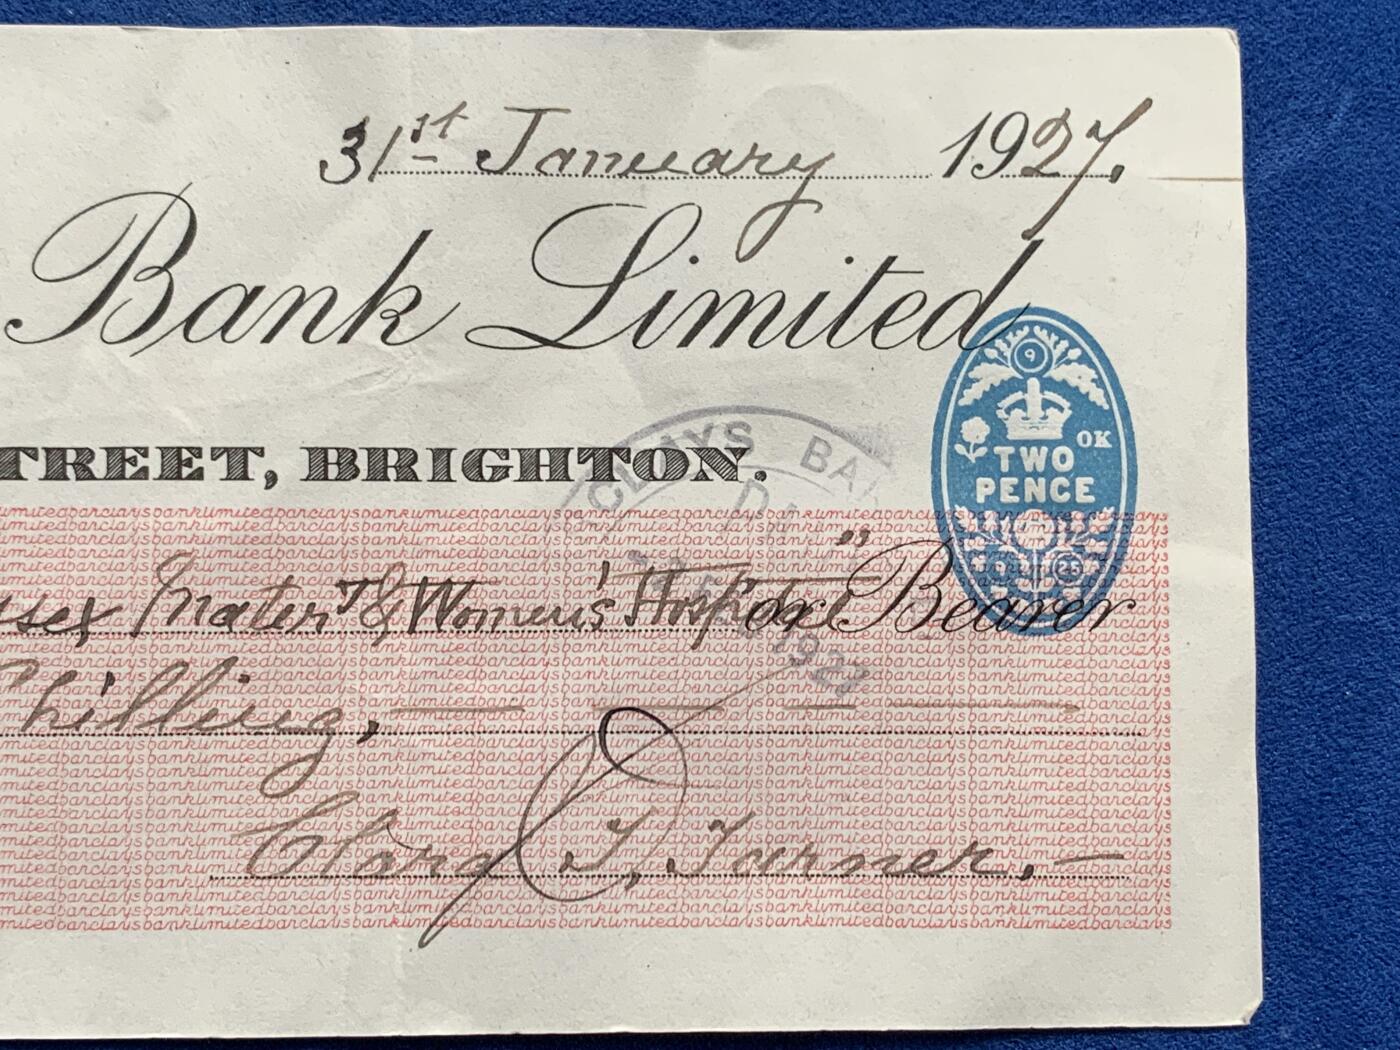 31st January 1927.
Bank Limited
9
OK
TWO
PENCE
25
TREET, BRIGHTON.
CLAYS BAN
ssex Matery & Women's Hosp or Bearer
FEB 1927
Shilling,
Clara T. Turner.